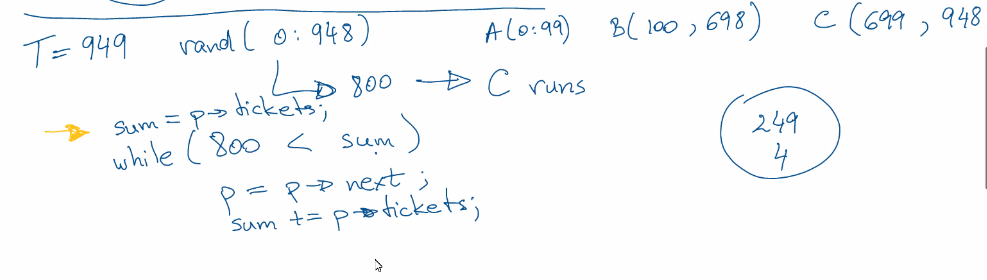 T = 949 rand( 0: 948) A(0:99) B(100,698) C (699, 948
800 → C runs
sum = p→tickets;
while (800 < sum)
p = p→next;
sum += p→tickets;
249
4